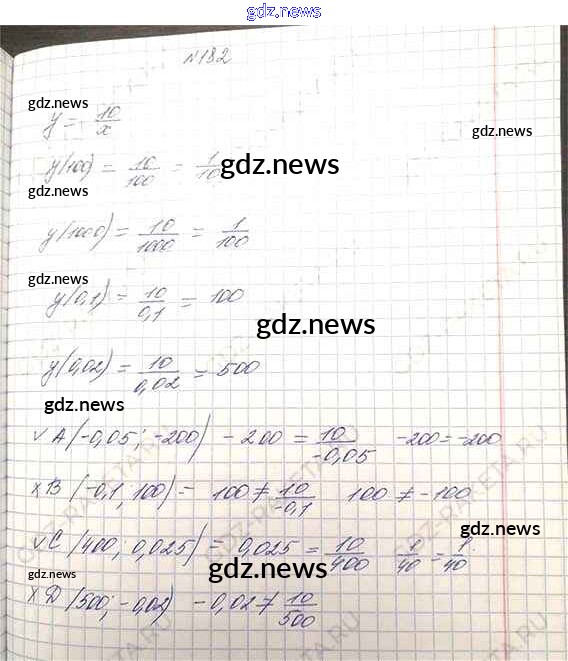 gdz.news
№182
gdz.news
y = 10/x
gdz.news
y(100) = 10/100 = 1/10
gdz.news
gdz.news
y(1000) = 10/1000 = 1/100
gdz.news
y(0,1) = 10/0,1 = 100
gdz.news
y(0,02) = 10/0,02 = 500
gdz.news
√ A (-0,05; -200) -200 = 10/-0,05 -200 = -200
× B (-0,1; 100) = 100 ≠ 10/-0,1 100 ≠ -100
√ C (400; 0,025) = 0,025 = 10/400 1/40 = 1/40
gdz.news
gdz.news
gdz.news
× D (500; -0,02) -0,02 ≠ 10/500